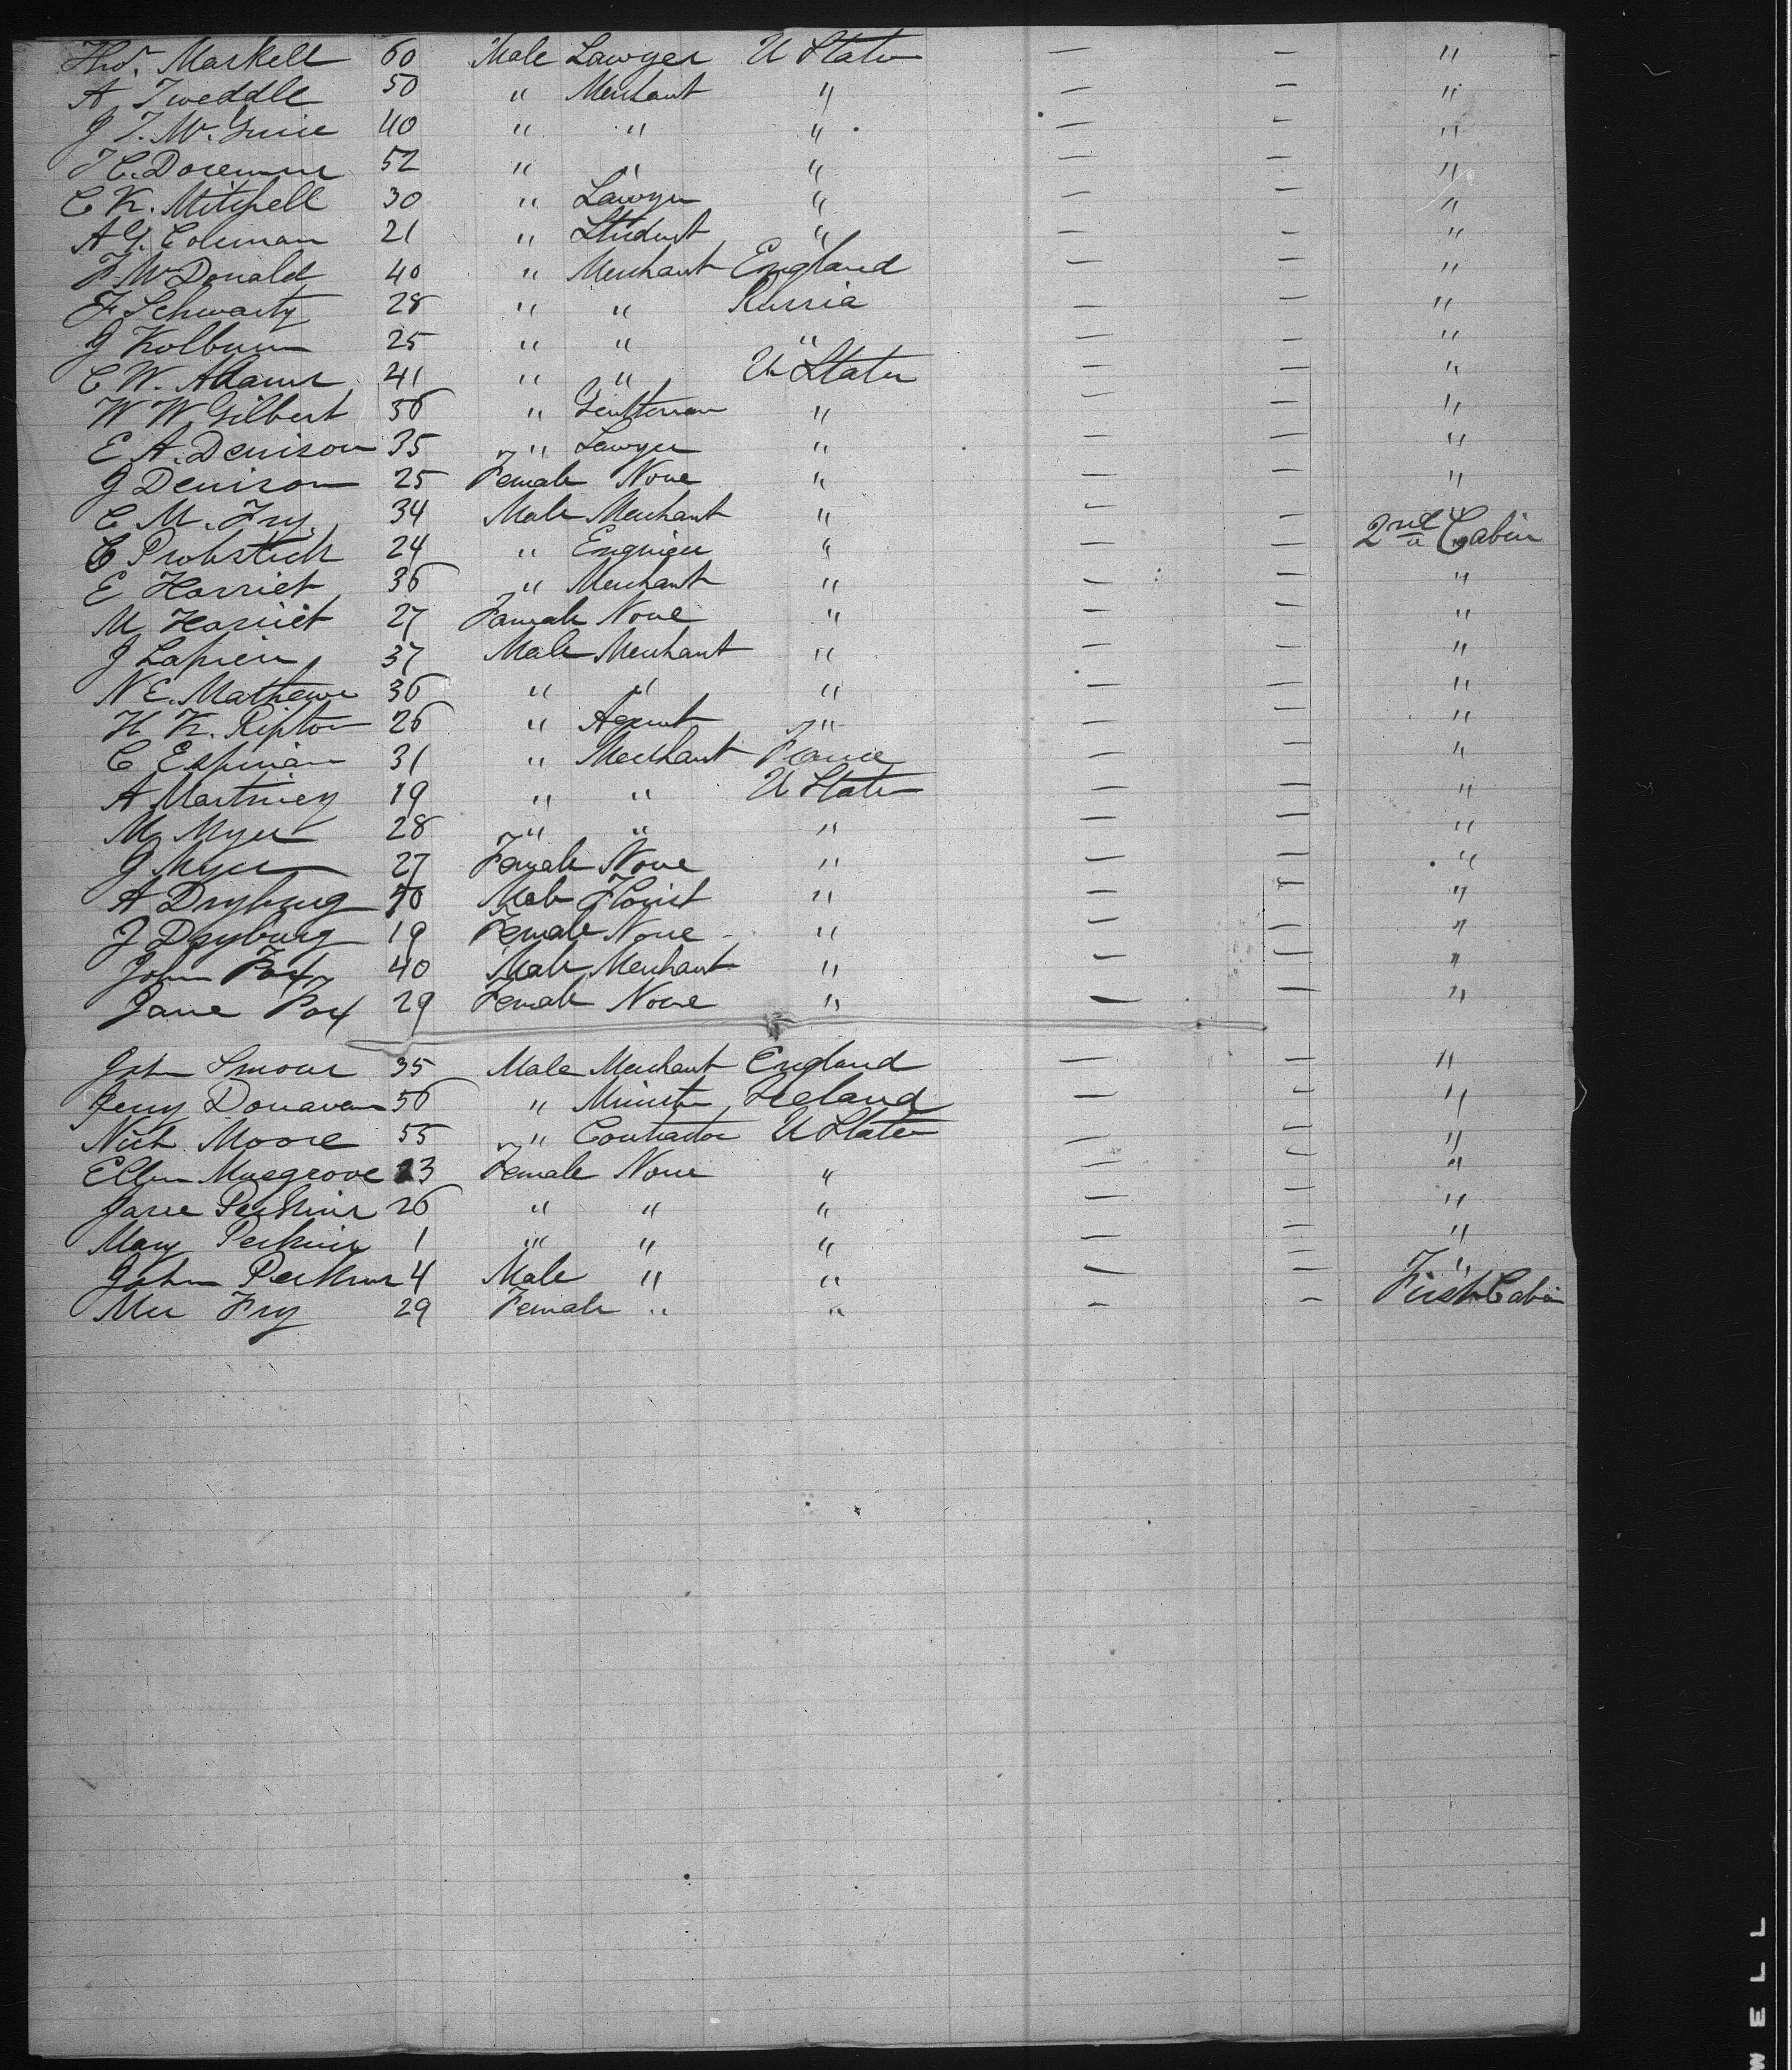 Thos. Markell 60 Male Lawyer U States — — "
A Tweddle 50 " Merchant " — — "
J T. Mc. Guire 40 " " " — — "
T C. Doremus 52 " " " — — "
C K. Mitchell 30 " Lawyer " — — "
A G. Coleman 21 " Student " — — "
F McDonald 40 " Merchant England — — "
F Schwartz 28 " " Russia — — "
J Kolburn 25 " " " — — "
C W. Adams 41 " " U States — — "
W W Gilbert 36 " Gentleman " — — "
E A. Denison 35 " Lawyer " — — "
J Denison 25 Female None " — — "
C M. Fry. 34 Male Merchant " — — "
C 24 " Engineer " — — 2nd Cabin
E Harriet 36 " Merchant " — — "
M Harriet 27 Female None " — — "
J Lapien 37 Male Merchant " — — "
N E. Mathews 36 " " " — — "
H K. Ripton 26 " Agent " — — "
C 31 " Merchant France — — "
A Martiney 19 " " U States — — "
M Myer 28 " " " — — "
J Myer 27 Female None " — — "
A Dryburg Male Florist " — — "
J Dryburg 19 Female None " — — "
John 40 Male Merchant " — — "
Jane 29 Female None " — — "
John 35 Male Merchant England — — "
Jerry Donavan 56 " Minister Ireland — — "
Nich Moore 55 " Contractor U States — — "
Ellen Musgrove 23 Female None " — — "
Jane Perkins 26 " " " — — "
Mary Perkins 1 " " " — — "
John Perkins 4 Male " " — — "
Mrs Fry 29 Female " " — — First Cabin
WELL